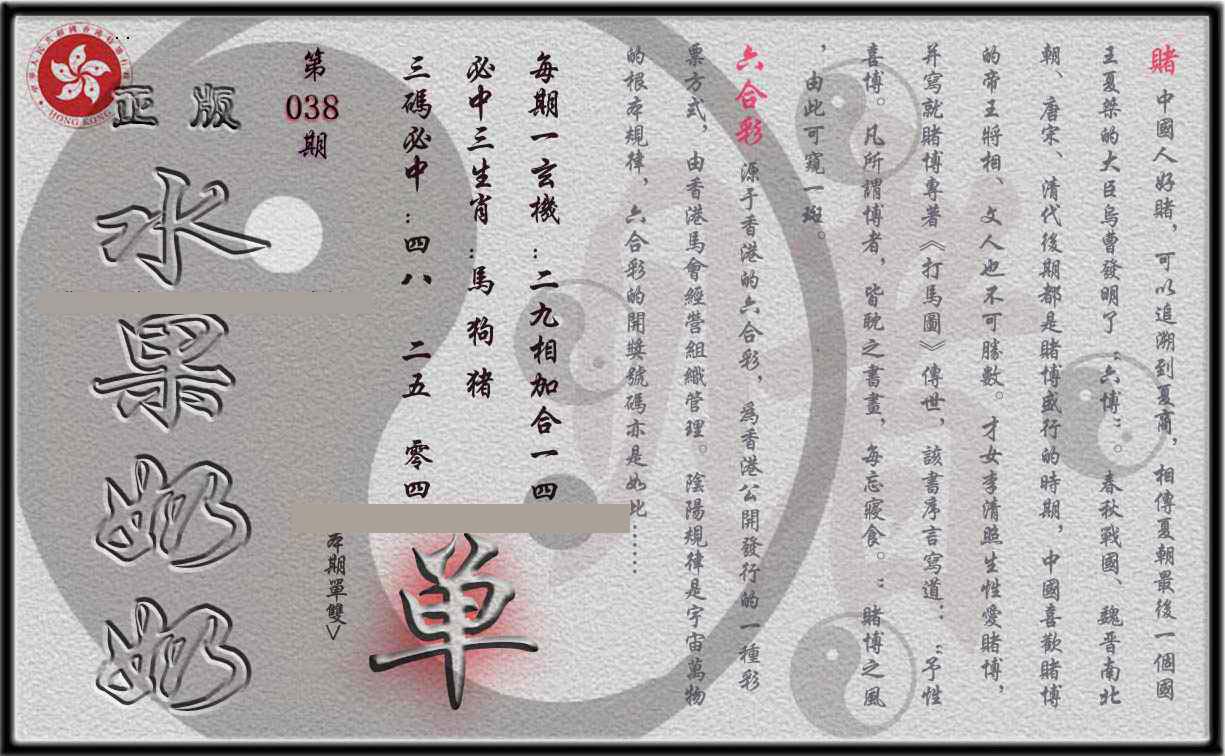 賭 中國人好賭，可以追溯到夏商，相傳夏朝最後一個國
王夏桀的大臣烏曹發明了“六博” 春秋戰國、魏晋南北
朝、唐宋、清代後期都是賭博盛行的時期，中國喜歡賭博
的帝王將相、文人也不可勝數。才女李清照生性愛賭博，
并寫就賭博專著《打馬圖》傳世，該書序言寫道：“予性
喜博。凡所謂博者，皆耽之書畫，每忘寢食。”賭博之風
，由此可窺一斑。
六合彩 源于香港的六合彩，爲香港公開發行的一種彩
票方式，由香港馬會經營組織管理。陰陽規律是宇宙萬物
的根本規律，六合彩的開獎號碼亦是如比……
每期一玄機：二九相加合一四
必中三生肖：馬 狗 猪
三碼必中：四八 二五 零四
第
038
期
本期單雙＞
单
正版
水果奶奶
HONG KONG